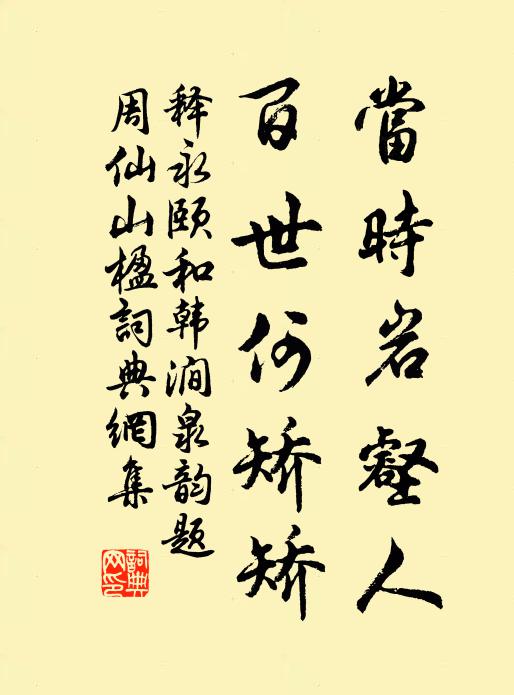 當時岩壑人
百世何矯矯
释永颐和韩涧泉韵题
周仙山楹詞典網集
詞典網印